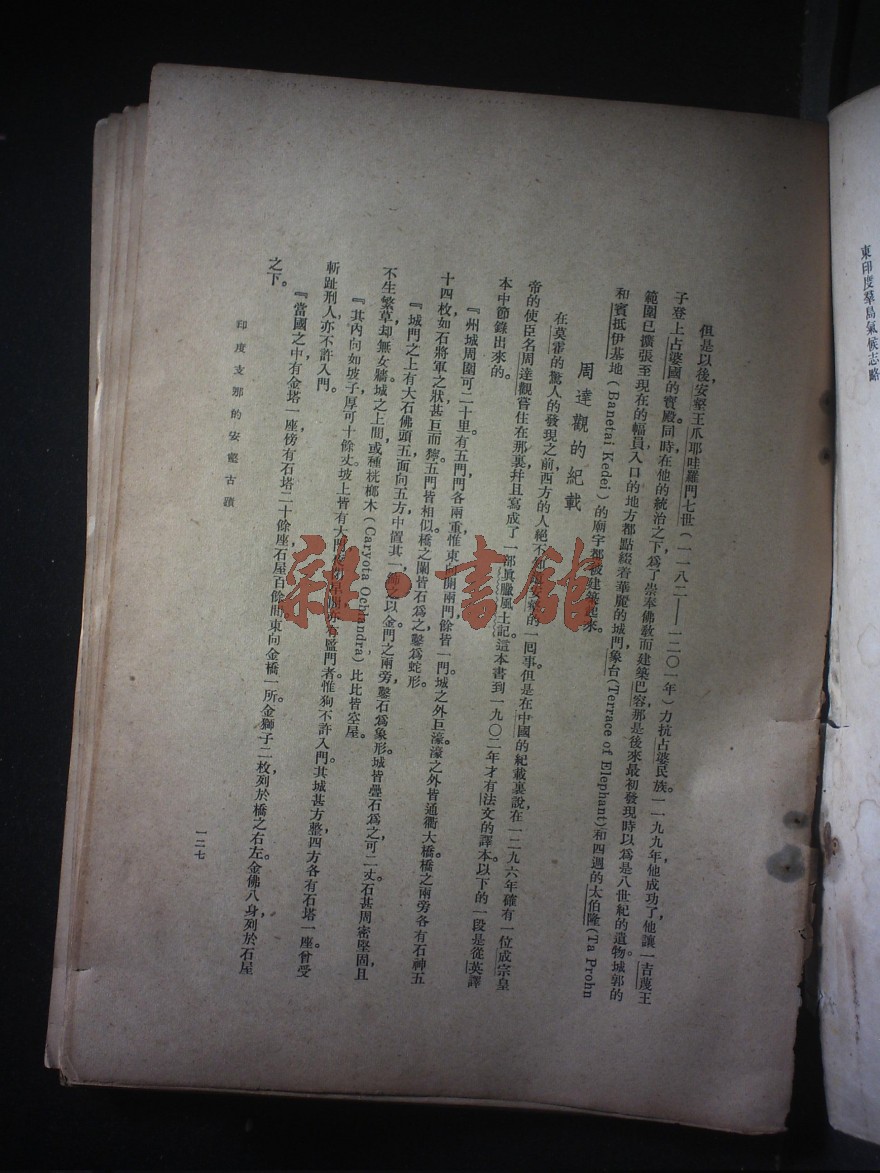 東印度羣島氣候志略
但是以後，安壑王爪耶哇羅門七世（一一八二——一二〇一年）力抗占婆民族。一一九九年，他成功了，他讓一吉蔑王
子登上占婆國的寶殿。同時在他的統治之下，爲了崇奉佛教而建築巴容，那是後來最初發現時以為是八世紀的遺物。城郭的
範圍已擴張至現在的幅員，入口的地方都點綴着華麗的城門，象台(Terrace of Elephant)和四週的太伯隆(Ta Prohn
和賓抵伊基地（Banetai Kedei）的廟宇都被建築起來。
周達觀的紀載
在莫霍的驚人的發現之前，西方的人絕不知道安壑的一囘事。但是在中國的紀載裏說，在一二九六年確有一位成宗皇
帝的使臣名周達觀嘗住在那裏，幷且寫成了一部眞臘風土記。這本書到一九〇二年才有法文的譯本。以下的一段是從英譯
本中節錄出來的。
『州城周圍可二十里。有五門，門各兩重。惟東向開兩門，餘皆一門。城之外巨濠，濠之外皆通衢大橋。橋之兩旁各有石神五
十四枚，如石將軍之狀，甚巨而獰。五門皆相似。橋之闌皆石爲之，鑿爲蛇形。
『城門之上有大石佛頭五，面向五方，中置其一，飾之以金。門之兩旁，鑿石爲象形。城皆疊石爲之，可二丈。石甚周密堅固，且
不生繁草，却無女牆。城之上，間或種桄榔木（Caryota Ochlandra）比比皆空屋。
『其內向如坡子，厚可十餘丈。坡上皆有大門，夜閉早開。亦有監門者，惟狗不許入門。其城甚方整，四方各有石塔一座。曾受
斬趾刑人亦不許入門。
『當國之中有金塔一座，傍有石塔二十餘座，石屋百餘間。東向金橋一所，金獅子二枚，列於橋之右左。金佛八身，列於石屋
之下。
印度支那的安壑古蹟
一二七